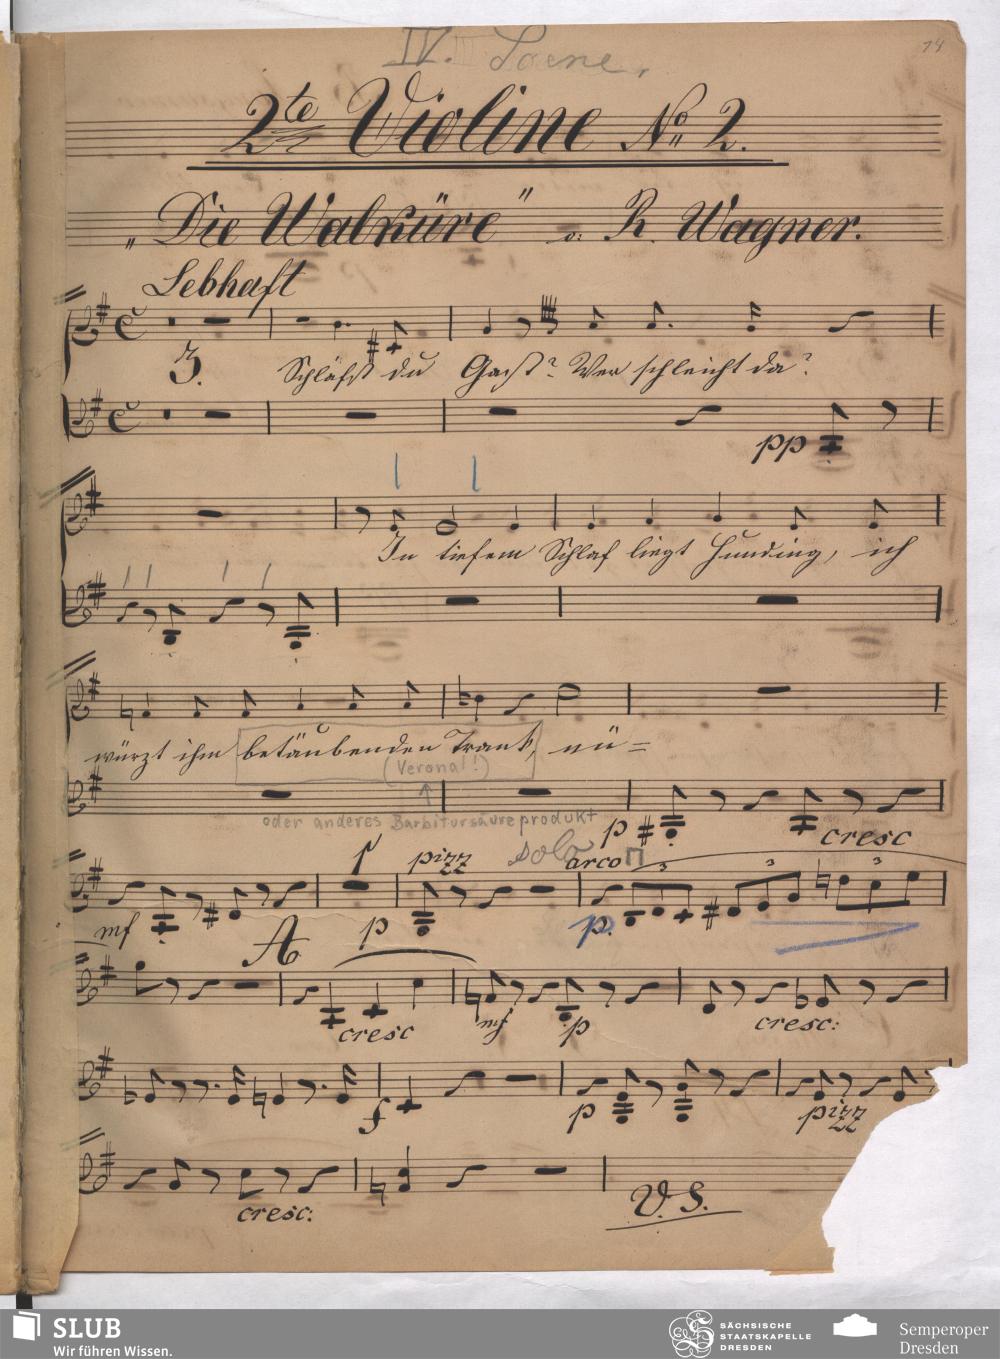 IV. III Scene.
14
2te Violine No 2.
„Die Walküre" v: R. Wagner.
Lebhaft
3.
Schläfst du Gast? Wer schleicht da?
pp
In tiefem Schlaf liegt Hunding, ich
würzt ihm betäubenden Trank, nü=
(Veronal!)
oder anderes Barbitursäureprodukt
p cresc
1 pizz solo arco
3 3 3
mf A p p.
cresc mf p cresc:
f p pizz
cresc: V. S.
SLUB
Wir führen Wissen.
SÄCHSISCHE
STAATSKAPELLE
DRESDEN
Semperoper
Dresden